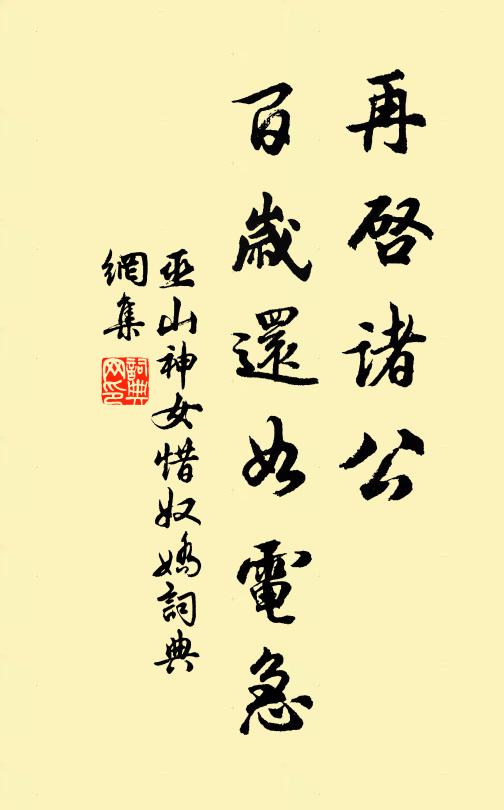 再啓諸公
百歲還如電急
巫山神女惜奴嬌詞典
網集
詞典
网印